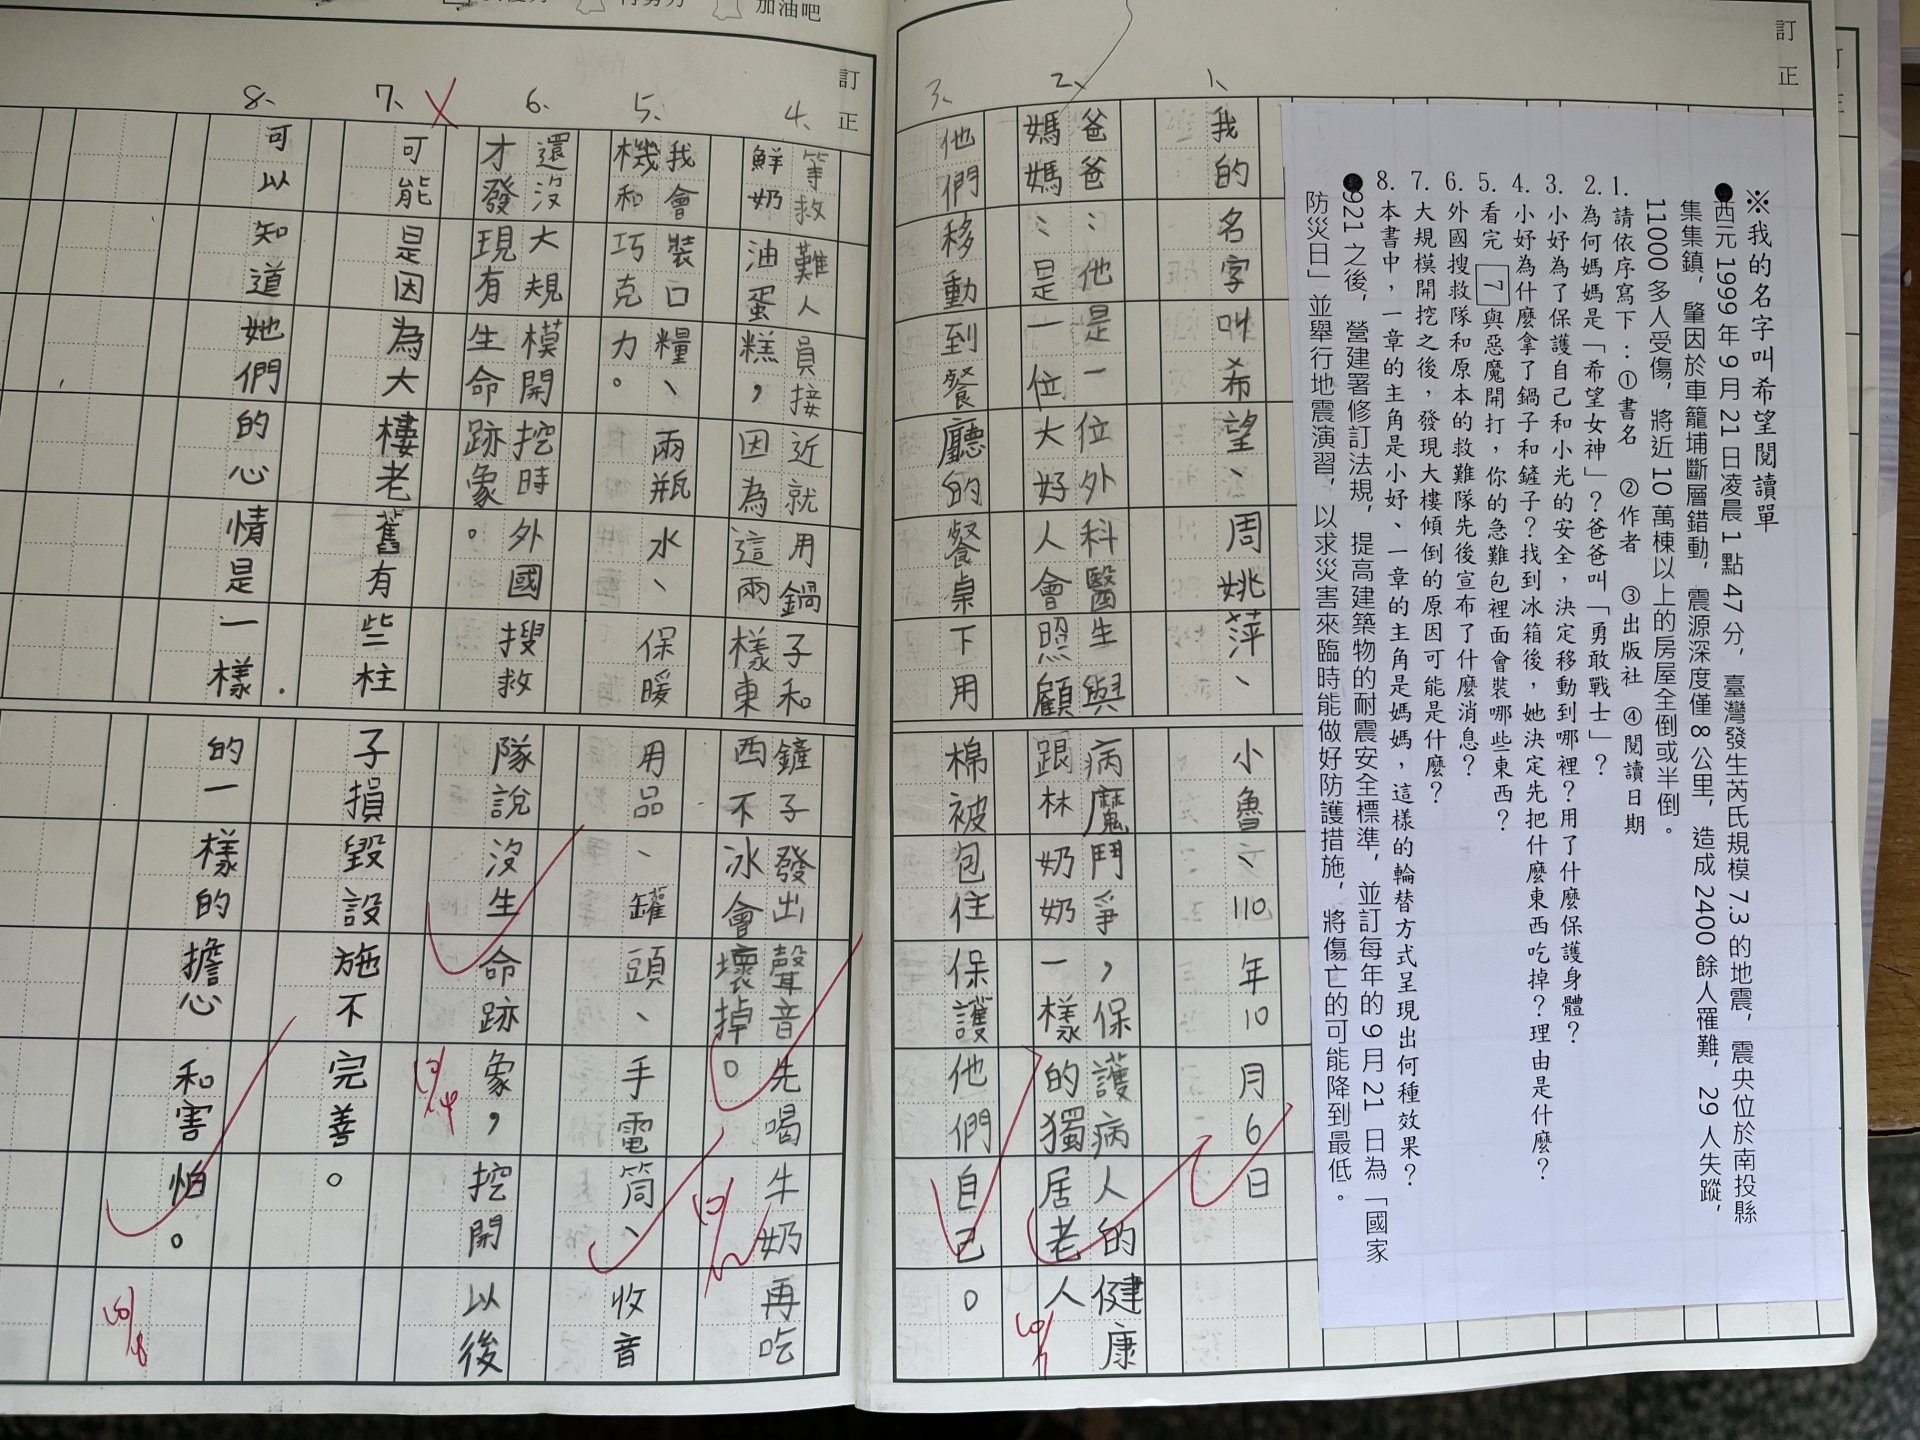 訂正
※我的名字叫希望閱讀單
●西元1999年9月21日凌晨1點47分，臺灣發生芮氏規模7.3的地震，震央位於南投縣
集集鎮，肇因於車籠埔斷層錯動，震源深度僅8公里，造成2400餘人罹難，29人失蹤，
11000多人受傷，將近10萬棟以上的房屋全倒或半倒。
1. 請依序寫下：①書名 ②作者 ③出版社 ④閱讀日期
2. 為何媽媽是「希望女神」？爸爸叫「勇敢戰士」？
3. 小妤為了保護自己和小光的安全，決定移動到哪裡？用了什麼保護身體？
4. 小妤為什麼拿了鍋子和鏟子？找到冰箱後，她決定先把什麼東西吃掉？理由是什麼？
5. 看完7與惡魔開打，你的急難包裡面會裝哪些東西？
6. 外國搜救隊和原本的救難隊先後宣布了什麼消息？
7. 大規模開挖之後，發現大樓傾倒的原因可能是什麼？
8. 本書中，一章的主角是小妤、一章的主角是媽媽，這樣的輪替方式呈現出何種效果？
●921之後，營建署修訂法規，提高建築物的耐震安全標準，並訂每年的9月21日為「國家
防災日」並舉行地震演習，以求災害來臨時能做好防護措施，將傷亡的可能降到最低。
1、我的名字叫希望、周姚萍、小魯、110年10月6日
2、爸爸：他是一位外科醫生與病魔鬥爭，保護病人的健康
媽媽：是一位大好人會照顧跟林奶奶一樣的獨居老人
3、他們移動到餐廳的餐桌下用棉被包住保護他們自己。
10/7
訂正
4、等救難人員接近就用鍋子和鏟子發出聲音先喝牛奶再吃
鮮奶油蛋糕，因為這兩樣東西不冰會壞掉。
10/12
5、我會裝口糧、兩瓶水、保暖用品、罐頭、手電筒、收音
機和巧克力。
6、還沒大規模開挖時外國搜救隊說沒生命跡象，挖開以後
才發現有生命跡象。
10/14
7、可能是因為大樓老舊有些柱子損毀設施不完善。
8、可以知道她們的心情是一樣的一樣的擔心和害怕。
10/18
加油吧